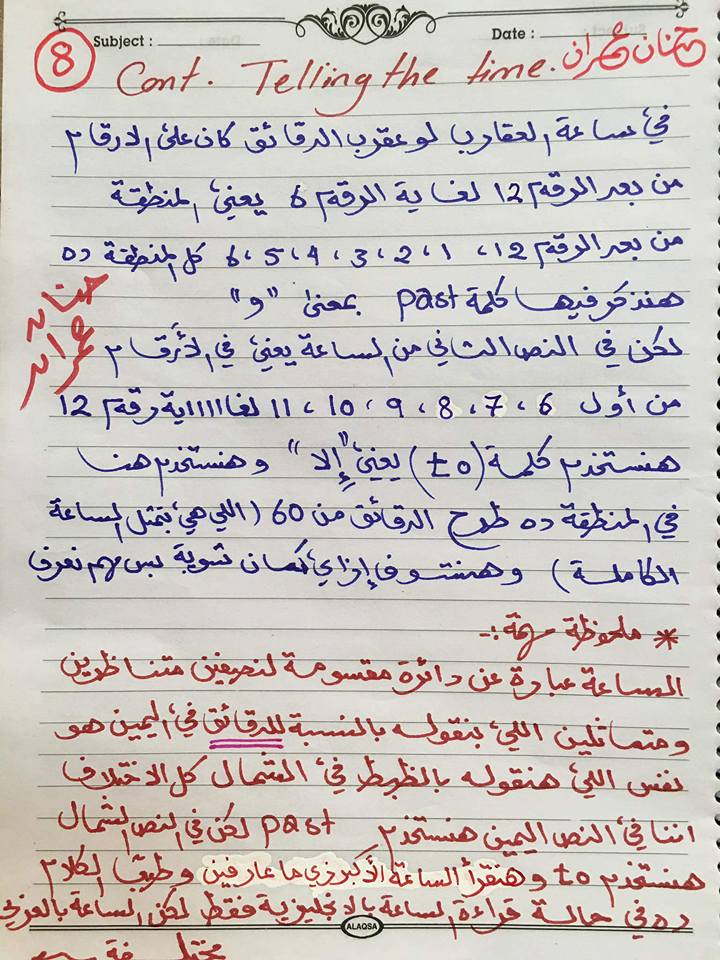 8
Subject :
Date :
حنان عمران
Cont. Telling the time.
في ساعة العقارب لو عقرب الدقائق كان على الارقام
من بعد الرقم 12 لغاية الرقم 6 يعني المنطقة
من بعد الرقم 12، 1، 2، 3، 4، 5، 6 كل المنطقة ده
هنذكر فيها كلمة past بمعنى "و"
حنان
عمران
لكن في النص الثاني من الساعة يعني في الأرقام
من أول 6، 7، 8، 9، 10، 11 لغااااية رقم 12
هنستخدم كلمة (to) يعني "إلا" وهنستخدم هنا
في المنطقة ده طرح الدقائق من 60 (اللي هي بتمثل الساعة
الكاملة) وهنشوف إزاي كمان شوية بس مهم نعرف
* ملحوظة مهمة :-
الساعة عبارة عن دائرة مقسومة لنصفين متناظرين
ومتماثلين اللي بنقوله بالنسبة للدقائق في اليمين هو
نفس اللي هنقوله بالظبط في الشمال كل الاختلاف
اننا في النص اليمين هنستخدم past لكن في النص الشمال
هنستخدم to وهنقرأ الساعة الأكبر زي ما عارفين وطبعًا الكلام
ده في حالة قراءة الساعة بالانجليزية فقط لكن الساعة بالعربي
مختلفة
ALAQSA